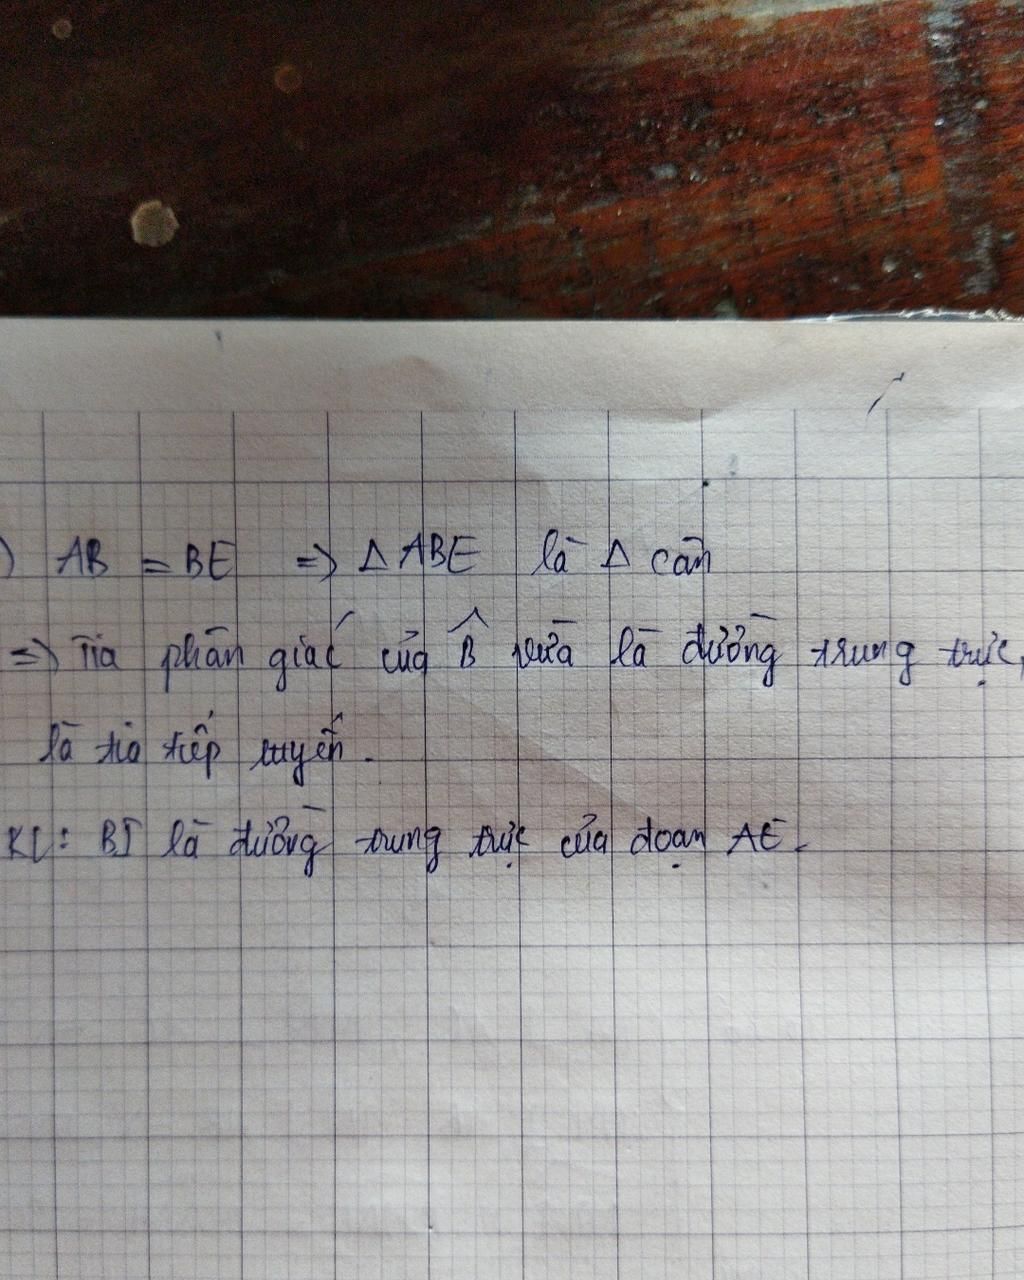 ) AB = BE => Δ ABE là Δ cân
=> Tia phân giác của B̂ vừa là đường trung trực,
là tia tiếp tuyến.
KL: BI là đường trung trực của đoạn AE.